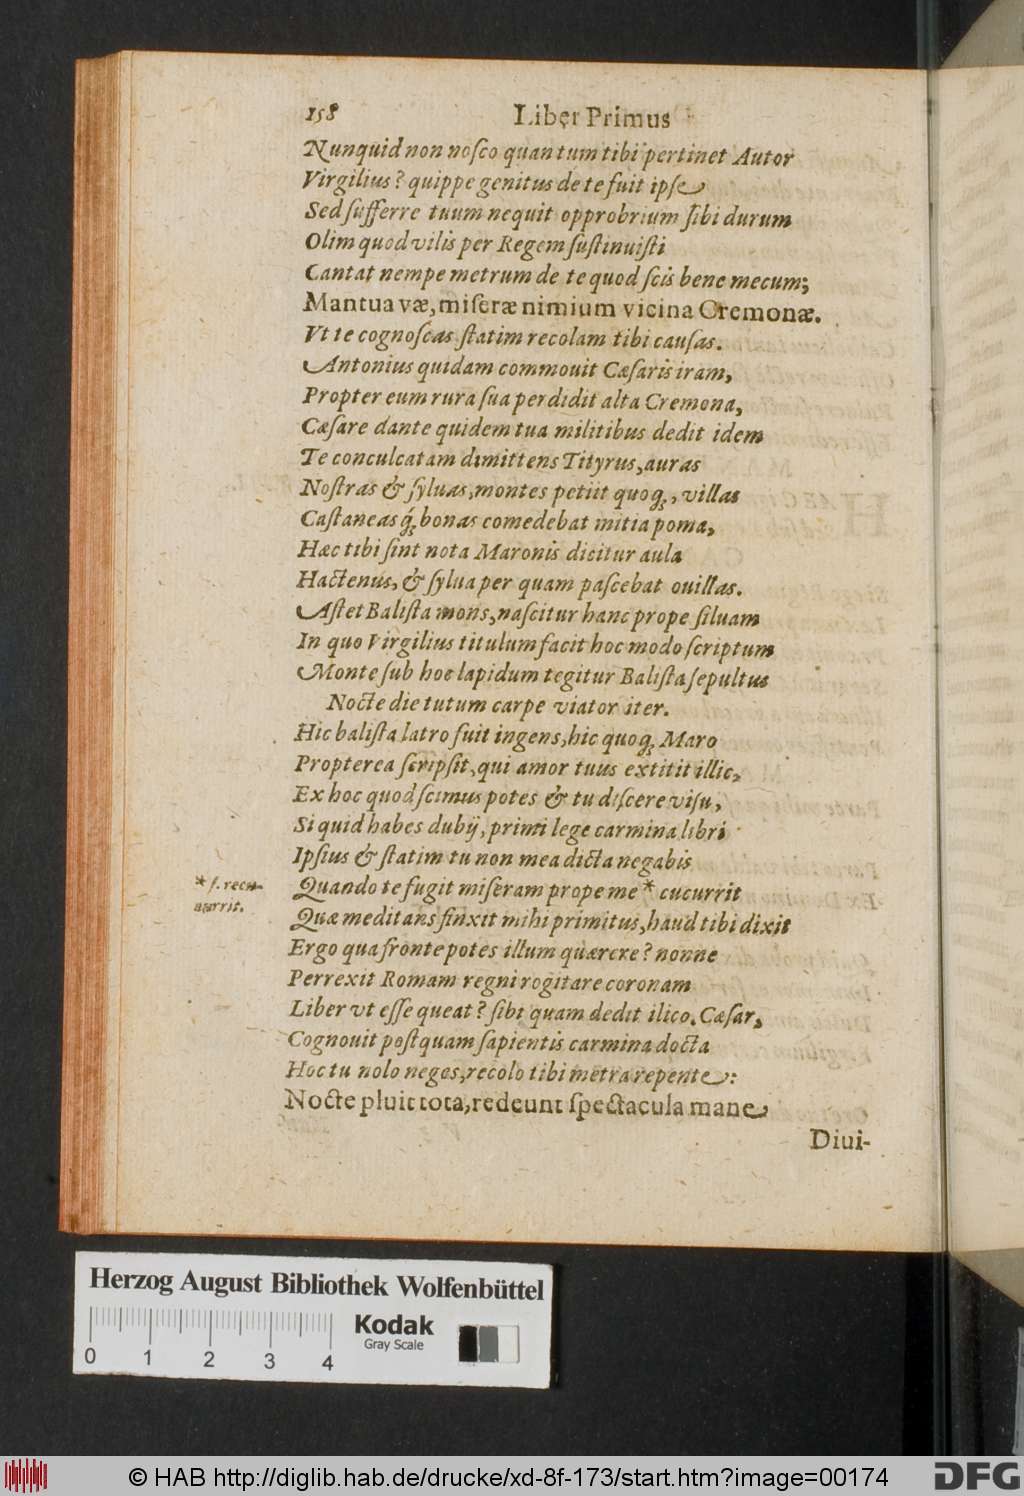 158 Liber Primus
Nunquid non nosco quantum tibi pertinet Autor
Virgilius? quippe genitus de te fuit ipse
Sed sufferre tuum nequit opprobrium sibi durum
Olim quod vilis per Regem sustinuisti
Cantat nempe metrum de te quod scis bene mecum;
Mantua væ, miseræ nimium vicina Cremonæ.
Vt te cognoscas statim recolam tibi causas.
Antonius quidam commouit Cæsaris iram,
Propter eum rura sua perdidit alta Cremona,
Cæsare dante quidem tua militibus dedit idem
Te conculcatam dimittens Tityrus, auras
Nostras & syluas, montes petiit quoq;, villas
Castaneasq́; bonas comedebat mitia poma,
Hæc tibi sint nota Maronis dicitur aula
Hactenus, & sylua per quam pascebat ouillas.
Astet Balista mons, nascitur hanc prope siluam
In quo Virgilius titulum facit hoc modo scriptum
Monte sub hoc lapidum tegitur Balista sepultus
Nocte die tutum carpe viator iter.
Hic balista latro fuit ingens, hic quoq; Maro
Propterea scripsit, qui amor tuus extitit illic,
Ex hoc quod scimus potes & tu discere visu,
Si quid habes dubij, primi lege carmina libri
Ipsius & statim tu non mea dicta negabis
Quando te fugit miseram prope me * cucurrit
* s. recu-
currit.
Quæ meditans finxit mihi primitus, haud tibi dixit
Ergo qua fronte potes illum quærere? nonne
Perrexit Romam regni rogitare coronam
Liber vt esse queat? sibi quam dedit ilico. Cæsar,
Cognouit postquam sapientis carmina docta
Hoc tu nolo neges, recolo tibi metra repente:
Nocte pluit tota, redeunt spectacula mane
Diui-
Herzog August Bibliothek Wolfenbüttel
0 1 2 3 4
Kodak
Gray Scale
© HAB http://diglib.hab.de/drucke/xd-8f-173/start.htm?image=00174
DFG